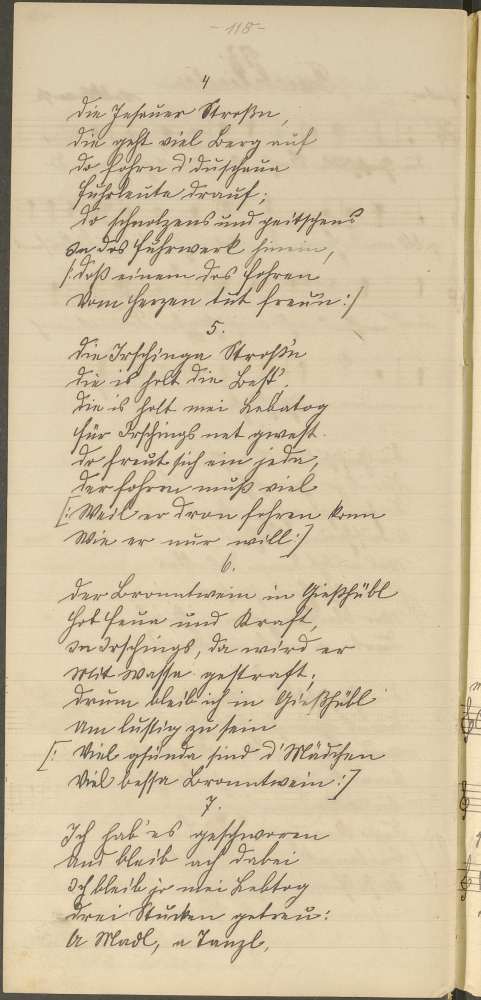 - 118 -
4
Die Jesauer Stroßn,
die geht viel Berg auf
do fohrn d'
Fuhrleute drauf;
do schnolzens und peitschens
In dos Fuhrwerk hinein,
/: doß einem dos Fohren
Vom Herzen tut freun :/
5.
Die Irschinga Stroß'n
die is holt die Best',
die is holt mei Lebatog
für Irschings net gwest.
do freut sich ein jeda,
der fohren muß viel
[: Weil er dron fohren konn
Wie er nur will :]
6.
Der Bronntwein in Gießhübl
Hot Feua und Kraft,
In Irschings, da wird er
Mit Wassa gestraft;
drum bleib ich in Gießhübl
Um lustig zu sein
[: Viel gsünda sind d'Mädchen
Viel bessa Bronntwein :]
7.
Ich hab' es geschworen
Und bleib ach dabei
Ich bleib jo mei Lebtog
drei Stucken getreu:
A Madl, a Tanzl,